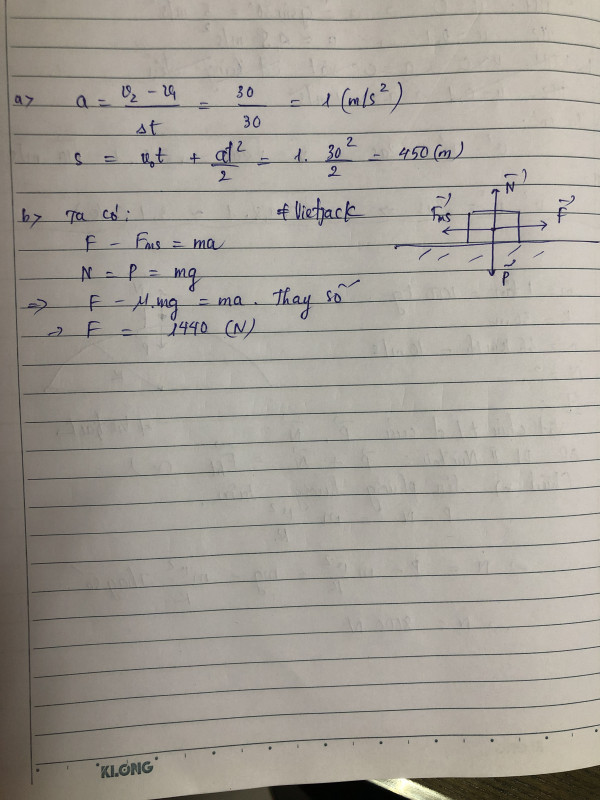 a> a = v₂ - v₁ / Δt = 30 / 30 = 1 (m/s²)
s = v₀t + at² / 2 = 1. 30² / 2 = 450 (m)
b> Ta có: # Vietjack
F - Fms = ma
N = P = mg
=> F - μ.mg = ma. Thay số
-> F = 1440 (N)
N
Fms F
P
KLONG